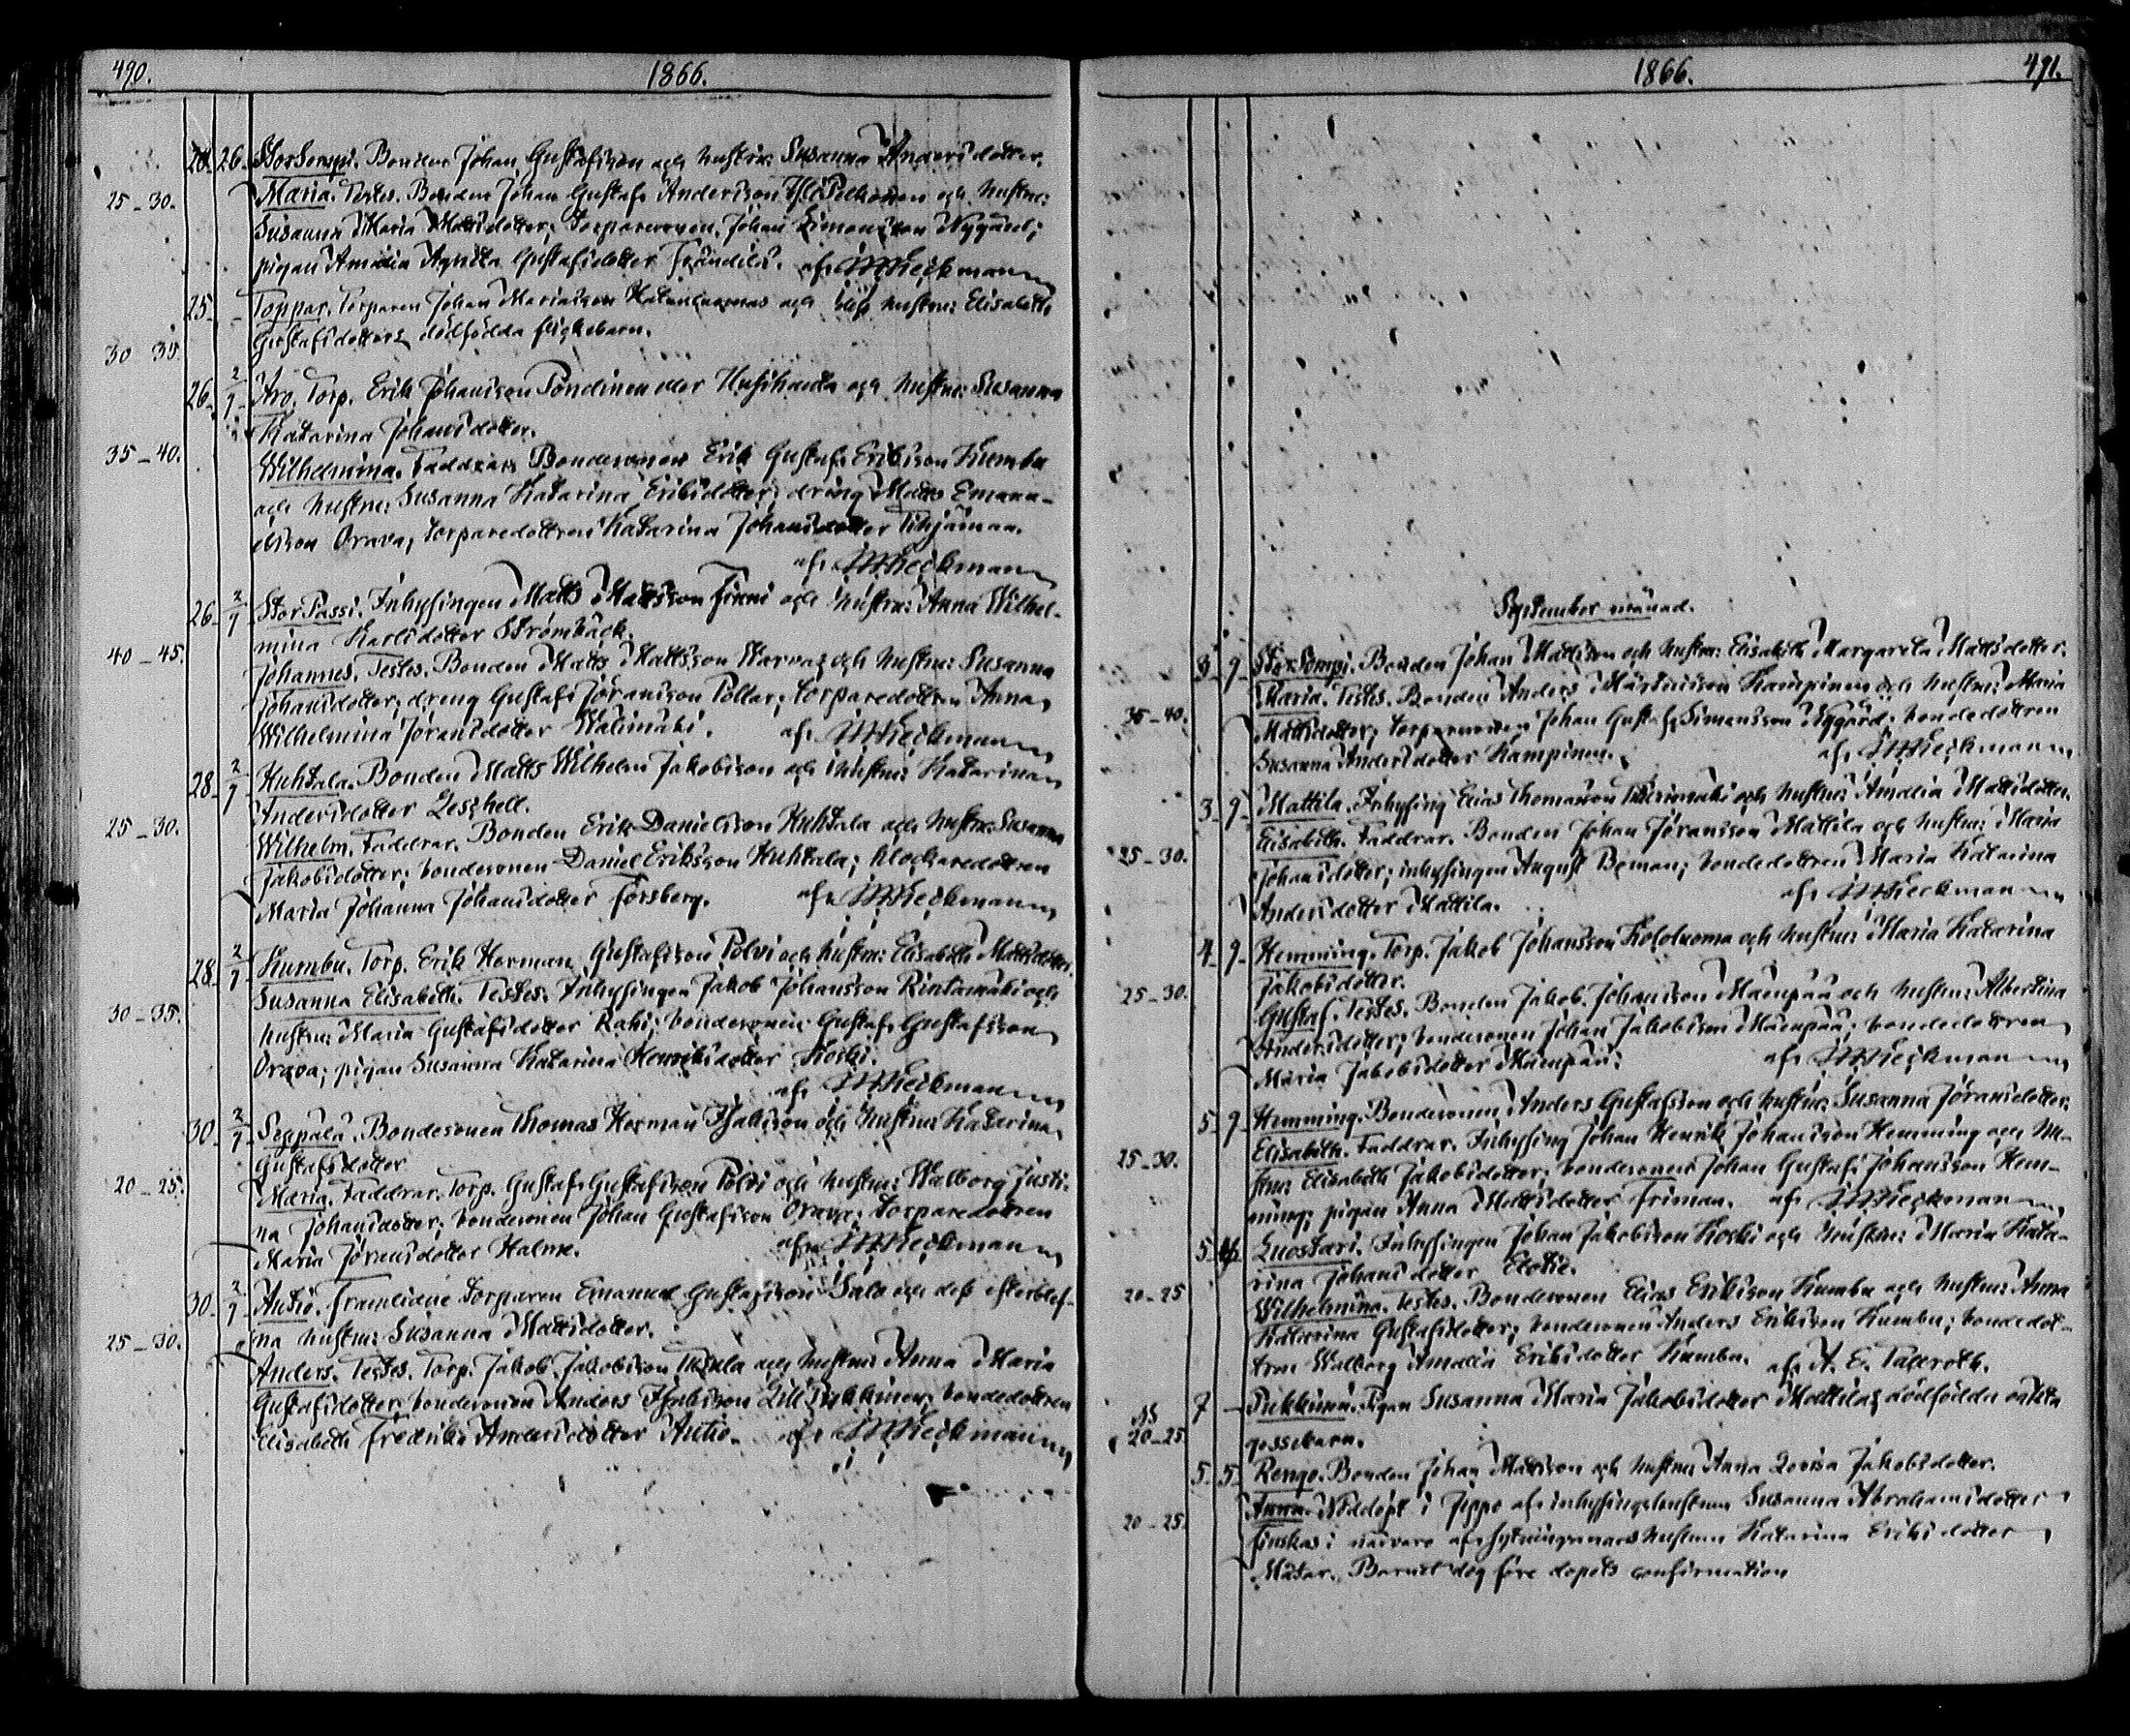 490. 1866.
24. 26. StorSompi. Bonden Johan Gustafsson och hustru: Susanna Andersdotter.
25-30. Maria. Testes. Bonden Johan Gustaf Andersson och hustru:
Susanna Maria Mattsdotter; torparesonen Johan Simonsson Nygård;
pigan Amalia Agneta Gustafsdotter Frändilä. af MHeickmann
25. - Toppar. Torparen Johan Mariasson och dess hustru: Elisabeth
30 35. Gustafsdotters dödfödda flickebarn.
26. 2/9 Aro. Torp. Erik Johansson Pöndinen eller Huhihanta och hustru: Susanna
Katarina Johansdotter.
35-40. Wilhelmina. Faddrar: Bondesonen Erik Gustaf Eriksson Kumbu
och hustru: Susanna Katarina Eriksdotter; dräng Matts Emanu-
elsson Orava; torparedottren Katarina Johansdotter
af MHeickmann
26. 2/9 StorPassi. Inhysingen Matts Mattsson Finni och hustru: Anna Wilhel-
mina Karlsdotter Strömbäck.
40-45. Johannes. Testes. Bonden Matts Mattsson Warvas och hustru: Susanna
Johansdotter; dreng Gustaf Jöransson Pollar; torparedottren Anna
Wilhelmina Jöransdotter Wälimäki. af MHeickmann
28. 2/9 Huhtala. Bonden Matts Wilhelm Jakobsson och hustru: Katarina
Andersdotter Zeschell.
25-30. Wilhelm. Faddrar. Bonden Erik Danielsson Huhtala och hustru: Susanna
Jakobsdotter; bondesonen Daniel Eriksson Huhtala; klockaredottren
Maria Johanna Johansdotter Forsberg. af MHeickmann
28. 2/9 Kumbu. Torp. Erik Herman Gustafsson Polvi och hustru: Elisabeth Mattsdotter.
Susanna Elisabeth. Testes: Inhysingen Jakob Johansson Rintamäki och
30-35. hustru: Maria Gustafsdotter Rahi; bondesonen Gustaf Gustafsson
Orava; pigan Susanna Katarina Henriksdotter Koski.
af MHeickmann
30. 2/9 Seppälä. Bondesonen Thomas Herman Isaksson och hustru: Katarina
Gustafsdotter
20-25. Maria. Faddrar. Torp. Gustaf Gustafsson Polvi och hustru: Walborg Justi-
na Johansdotter; bondesonen Johan Gustafsson Orava; torparedottren
Maria Jöransdotter Halme. af MHeickmann
30. 2/9 Autio. Framlidne torparen Emanuel Gustafsson Salo och dess efterblef-
na hustru: Susanna Mattsdotter.
25-30. Anders. Testes. Torp. Jakob Jakobsson och hustru: Anna Maria
Gustafsdotter; bondesonen Anders Isaksson LillPukkinen; bondedottren
Elisabeth Fredrika Andersdotter Autio. af MHeickmann
1866. 491.
September månad.
3. 9. StorSompi. Bonden Johan Mattsson och hustru: Elisabeth Margareta Mattsdotter.
Maria. Testes. Bonden Anders Mårtensson Kampinen och hustru: Maria
35-40. Mattsdotter; torparesonen Johan Gustaf Simonsson Nygård; bondedottren
Susanna Andersdotter Kampinen. af MHeickmann
3. 9. Mattila. Inhysing Elias Thomasson och hustru: Amalia Mattsdotter.
Elisabeth. Faddrar. Bonden Johan Jöransson Mattila och hustru: Maria
25-30. Johansdotter; inhysingen August Boman; bondedottren Maria Katarina
Andersdotter Mattila. af MHeickmann
4. 9. Hemming. Torp. Jakob Johansson Kololuoma och hustru: Maria Katarina
Jakobsdotter.
25-30. Gustaf. Testes. Bonden Jakob Johansson Mäenpää och hustru: Albertina
Andersdotter; bondesonen Johan Jakobsson Mäenpää; bondedottren
Maria Jakobsdotter Mäenpää. af MHeickmann
5. 9. Hemming. Bondesonen Anders Gustafsson och hustru: Susanna Jöransdotter.
25-30. Elisabeth. Faddrar. Inhysing Johan Henrik Johansson Hemming och hu-
stru: Elisabeth Jakobsdotter; bondesonen Johan Gustaf Johansson Hem-
ming; pigan Anna Mattsdotter Friman. af MHeickmann
5. Luostari. Inhysingen Johan Jakobsson Koski och hustru: Maria Kata-
rina Johansdotter
20-25 Wilhelmina. Testes. Bondesonen Elias Eriksson Kumbu och hustru: Anna
Katarina Gustafsdotter; bondesonen Anders Eriksson Kumbu; bondedot-
tren Walborg Amalia Eriksdotter Kumbu. af A. E. Taxeroth.
7 - Pukkinen. Pigan Susanna Maria Jakobsdotter Mattilas dödfödda oäkta
20-25 gossebarn.
5. 5. Rengo. Bonden Johan Mattsson och hustru: Anna Lovisa Jakobsdotter.
20-25. Anna. Nöddöpt i Jeppo af inhysingshustrun Susanna Abrahamsdotter
Finskas i närvaro af hustrun Katarina Eriksdotter
Måtar. Barnet dog före dopets confirmation